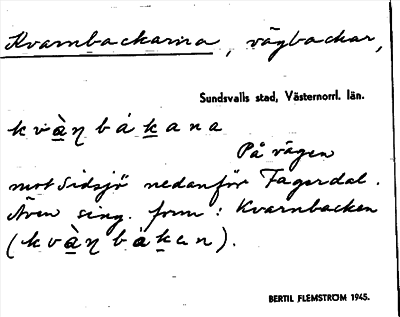 Kvarnbackarna, vägbackar,
Sundsvalls stad, Västernorrl. län.
kvàꞃbákana
På vägen
mot Sidsjö nedanför Fagerdal.
Även sing. form: Kvarnbacken
(kvàꞃbáken).
BERTIL FLEMSTRÖM 1945.